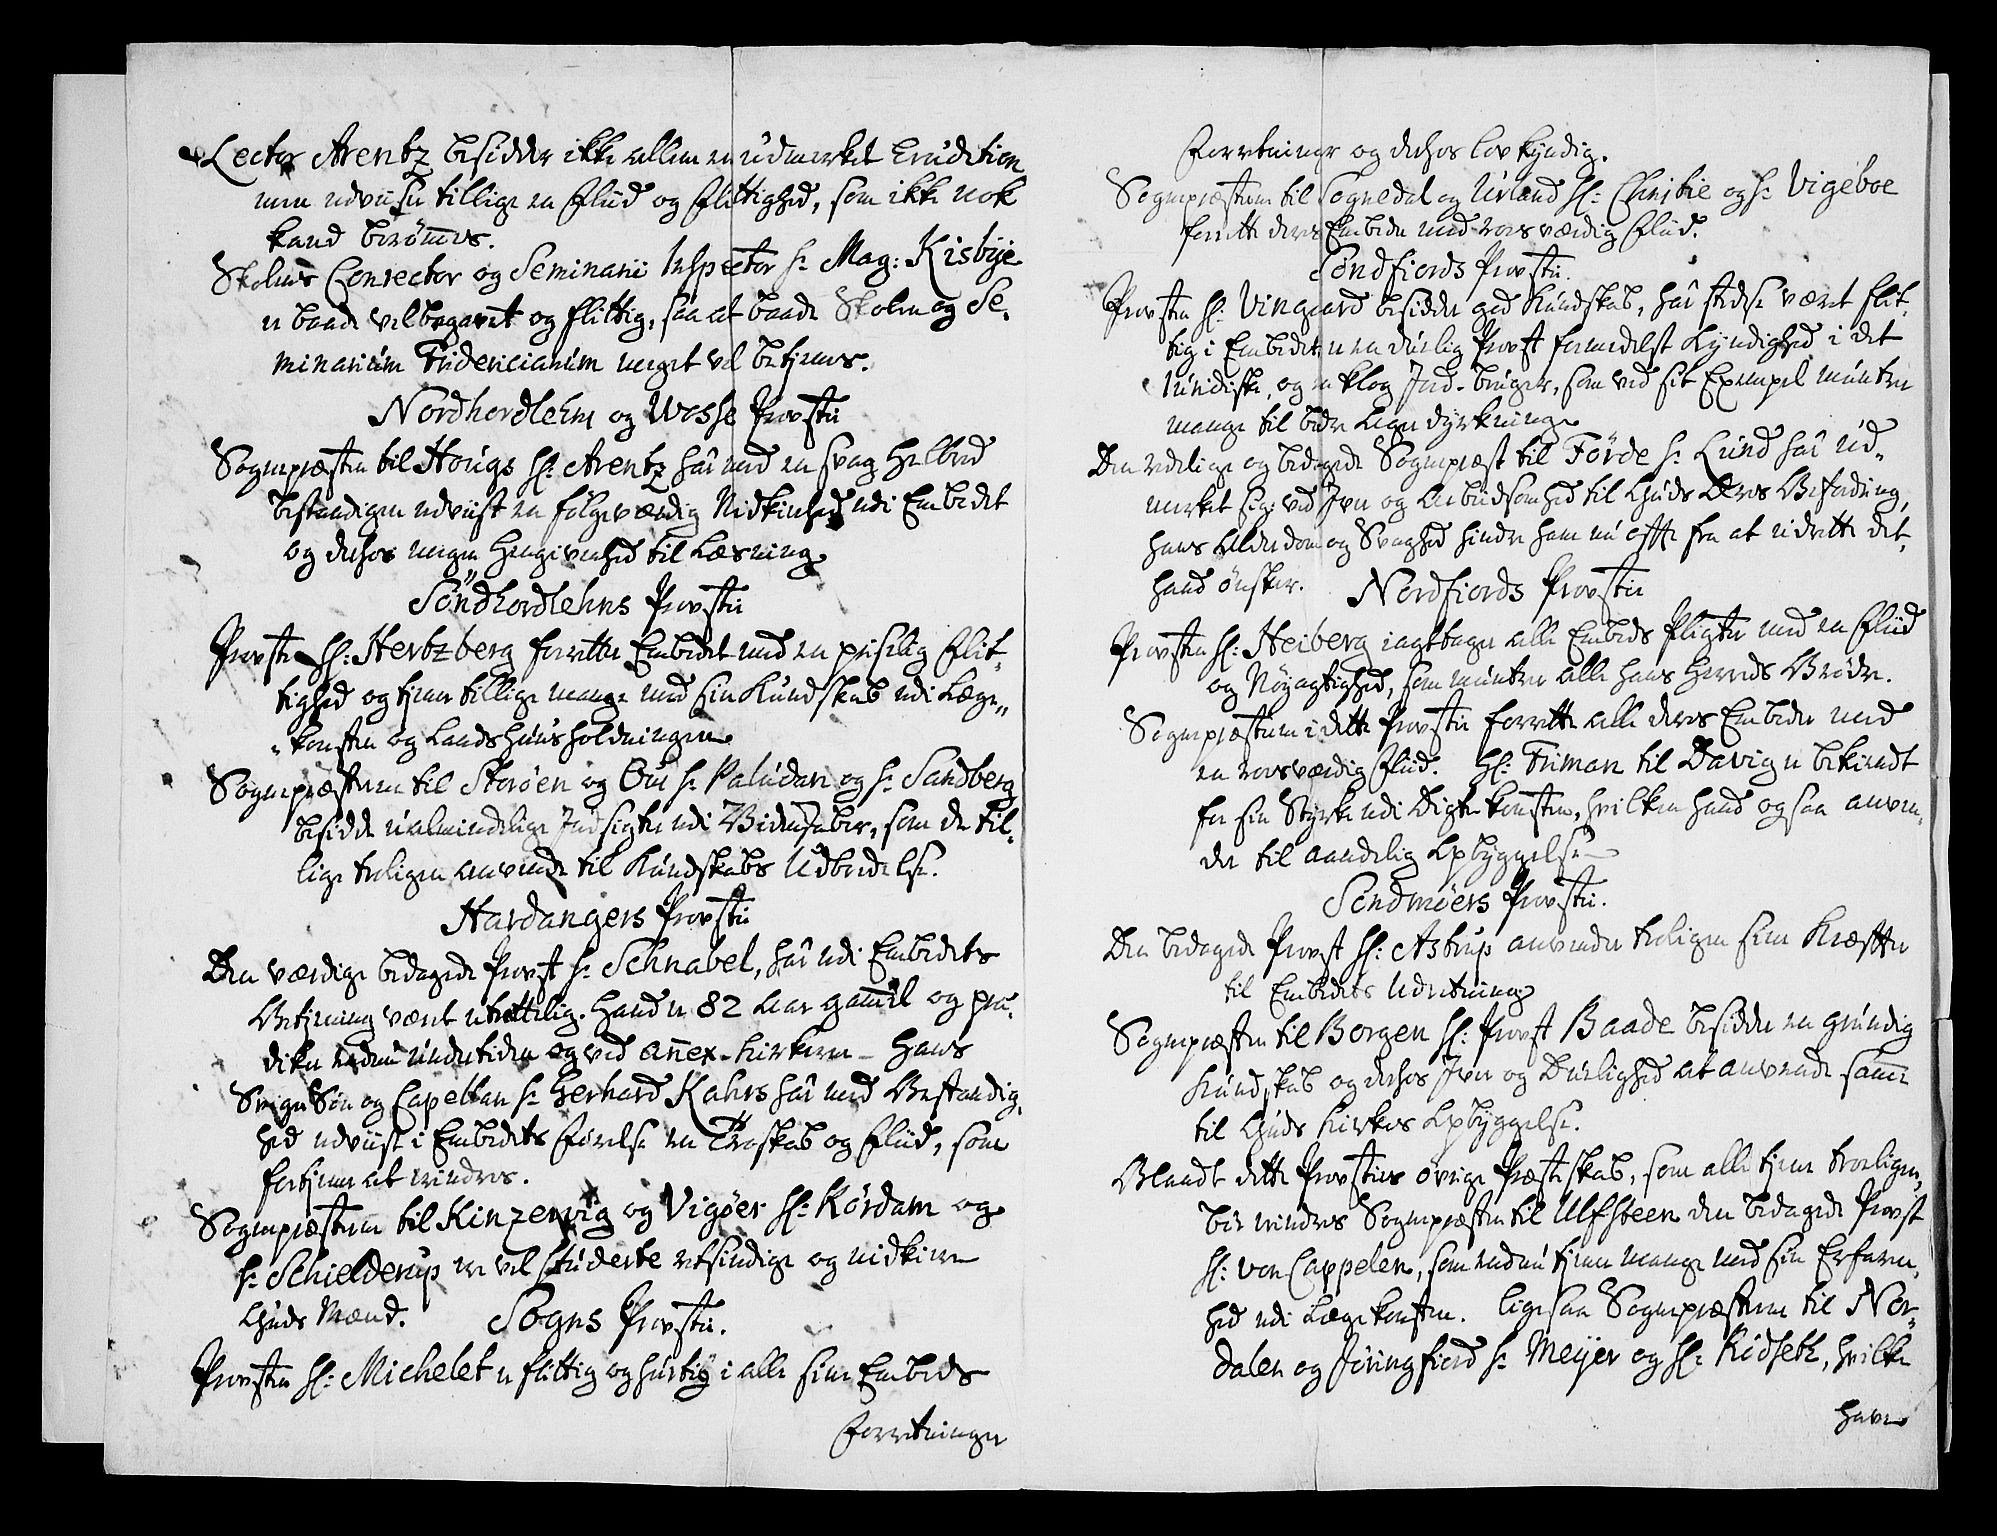 Lector Arentz besidder ikke alleene en udmerket Erudition
men udviiser tillige en Fliid og Flittighed, som ikke nok
kand berømmes.
Skolens Conrector og Seminarii Inspector hr Mag: Kisbÿe
er baade velbegavet og flittig, saa at baade Skolen og Se-
minarium Fridericianum meget vel betjenes.
Nordhordlehn og Wosse Provstie
Sognepræsten til Hougs Hr: Arentz har med en svag Helbred
bestandigen udviist en følgeværdig Nidkierhed udi Embedet
og derhos megen Hengivenhed til Læsning.
Söndhordlehns Provstie
Provsten Hr: Hertzberg forretter Embedet med en priselig Flit-
tighed og tjener tillige mange med sin Kundskab udi Læge-
konsten og Landhuusholdningen.
Sognepræsterne til Storøen og Ous hr Paludan og hr Sandberg
besidde ualmindelige Indsigter udi Videnskaber, som de til-
lige troligen anvende til Kundskabs Udbredelse.
Hardangers Provstie
Den værdige bedagede Provst hr Schnabel, har udi Embedets
Betjening været utrættelig. Hand er 82 Aar gammel og præ-
diker endnu undertiden og ved annex-Kirkerne - Hans
Sviger Søn og Capellan hr Gerhard Kahrs har med Bestandig-
hed udviist i Embedets Førelse en Troskab og Fliid, som
fortjener at erindres.
Sognepræsterne til Kinzervig og Vigøer Hr: Kördam og
hr Schielderup ere vel studerte retsindige og nidkiere
Guds Mænd. Sogns Provstie.
Provsten Hr: Michelet er flittig og hurtig i alle sine Embeds
Forretninger
Forretninger og derhos lovkyndig.
Sognepræsterne til Sognedal og Urland Hr: Christie og hr Vigeboe
forrette deres Embeder med roesværdig Fliid.
Söndfiords Provstie.
Provsten Hr: Vingaard besidder god Kundskab, har stedse været flit-
tig i Embedet, er en duelig Provst formedelst Kyndighed i det
Juridiske, og en klog Jord-bruger, som ved sit Exempel muntrer
mange til bedre Ager dyrkning.
Den redelige og bedagede Sognepræst til Förde hr Lund har ud-
merket sig ved Iver og Arbeidsomhed til Guds Æres Befordring,
hans Alderdom og Svaghed hindre ham nu offte fra at udrette det,
hand ønsker. Nordfiords Provstie
Provsten Hr: Heiberg iagttager alle Embeds Pligter med en Fliid
og Nøyagtighed, som muntrer alle hans Herreds Brødre.
Sognepræsterne i dette Provstie forrette alle deres Embeder med
en roesværdig Fliid. Hr: Friman til Davig er bekiendt
for sin Styrke udi Digtekonsten, hvilken hand ogsaa anven-
der til aandelig Opbyggelse -
Söndmøers Provstie.
Den bedagede Provst Hr: Astrup anvender troligen sine Kræffter
til Embedets Udretning
Sognepræsten til Borgen Hr: Provst Baade besidder en grundig
Kundskab og derhos Iver og Duelighed at anvende samme
til Guds Kirkes Opbyggelse.
Blandt dette Provsties øvrige Præsteskab, som alle tjene troeligen,
bör erindres Sognepræsten til Ulfsteen den bedagede Provst
Hr: von Cappelen, som endnu tjener mange med sin Erfaren-
hed udi Lægekonsten. Ligesaa Sognepræsterne til Nor-
dalen og Jöringfiord hr Meÿer og Hr: Rödseth, hvilke
have